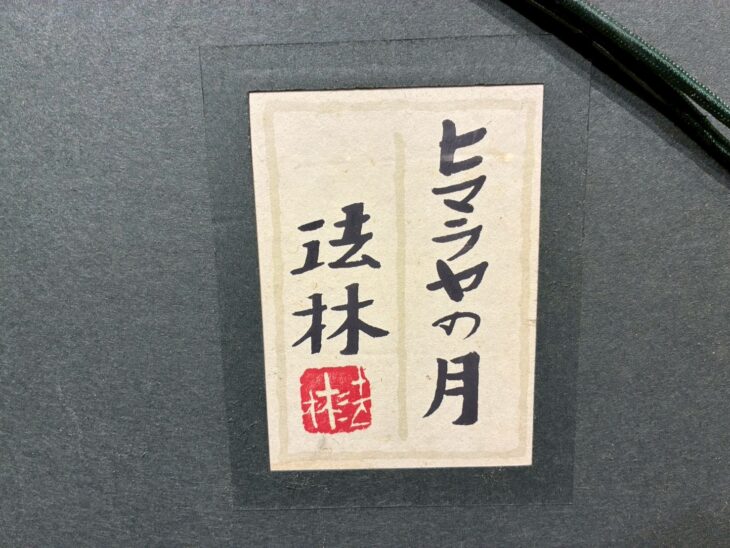 ヒマラヤの月
法林